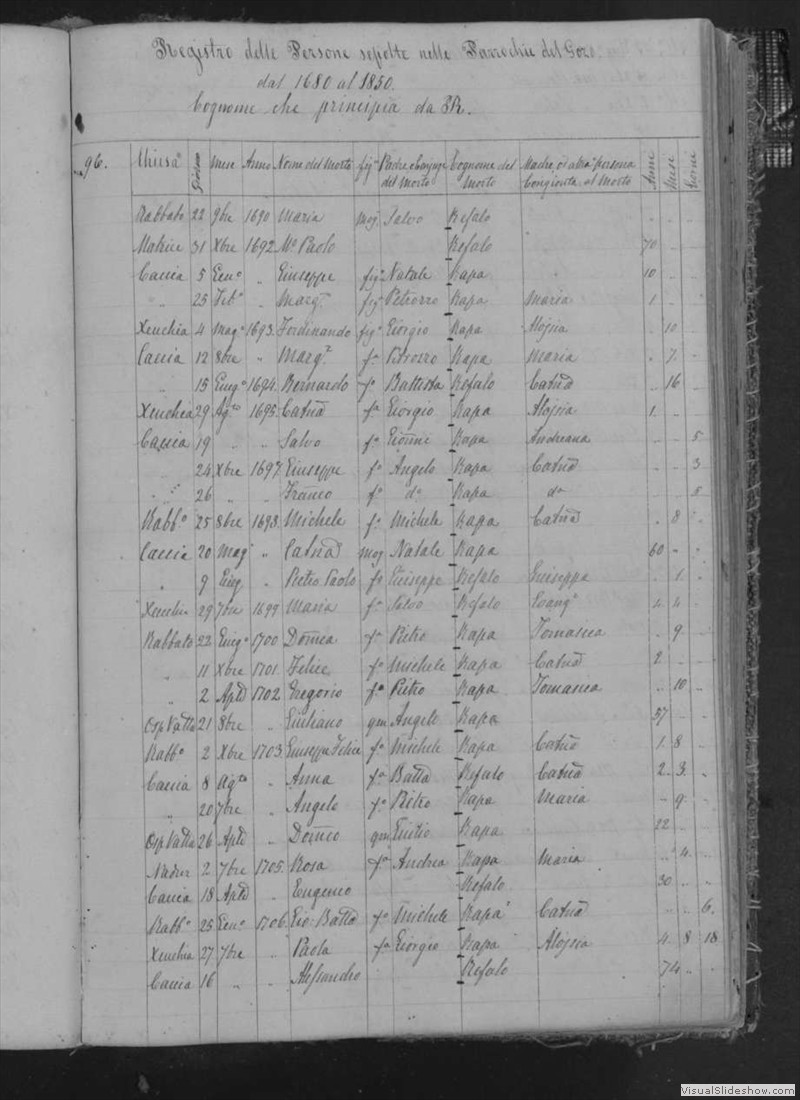 Registro delle Persone sepolte nelle Parrochie del Gozo
dal 1680 al 1850.
Cognome che principia da R.
96. Chiesa Giorno Mese Anno Nome del Morto fig.o Padre o Conjuge del Morto Cognome del Morto Madre, o altra persona Congionta al Morto Anni Mesi Giorni
Rabbato 22 9bre 1690 Maria mog. Salvo Refalo
Matrice 31 Xbre 1692 M.o Paolo Refalo 70
Caccia 5 Gen.o " Giuseppe fig.o Natale Rapa 10
" 25 Feb.o " Marg.ta fig.a Petrozzo Rapa Maria 1
Xeuchia 4 Mag.o 1693 Ferdinando fig.o Giorgio Rapa Aloisia 10
Caccia 12 8bre " Marg.a f.a Petrozzo Rapa Maria 7
" 15 Giug.o 1694 Bernardo f.o Battista Refalo Catna 16
Xeuchia 29 Ag.to 1695 Catna f.a Giorgio Rapa Aloisia 1
Caccia 19 " " Salvo f.o Gionni Rapa Andreana 5
" 24 Xbre 1697 Giuseppe f.o Angelo Rapa Catna 3
" 26 " " Franco f.o do Rapa da 5
Rabb.o 25 8bre 1698 Michele f.o Michele Rapa Catna 8
Caccia 20 Mag.o " Catna mog. Natale Rapa 60
" 9 Giug. " Pietro Paolo f.o Giuseppe Refalo Giuseppa 1
Xeuchia 29 7bre 1699 Maria f.a Salvo Refalo Evang.a 4 4
Rabbato 22 Giug.o 1700 Domca f.a Pietro Rapa Tomasica 9
" 11 Xbre 1701 Felice f.o Michele Rapa Catna 2
" 2 Aple 1702 Gregorio f.o Pietro Rapa Tomasica 10
Osp Vatta 21 8bre " Giuliano qm Angelo Rapa 57
Rabb.o 2 Xbre 1703 Giuseppe Felice f.o Michele Rapa Catna 1 8
Caccia 8 Ag.to " Anna f.a Batta Refalo Catna 2 3
" 20 7bre " Angelo f.o Pietro Rapa Maria 9
Osp Vatta 26 Aple " Domco qm Giulio Rapa 22
Nadur 2 7bre 1705 Rosa f.a Andrea Rapa Maria 4
Caccia 18 Aple " Eugenio Refalo 30
Rabb.o 25 Gen.o 1706 Gio Batta f.o Michele Rapa Catna 6
Xeuchia 27 7bre " Paola f.a Giorgio Rapa Aloisia 4 8 18
Caccia 16 " " Alessandro Refalo 74
VisualSlideshow.com